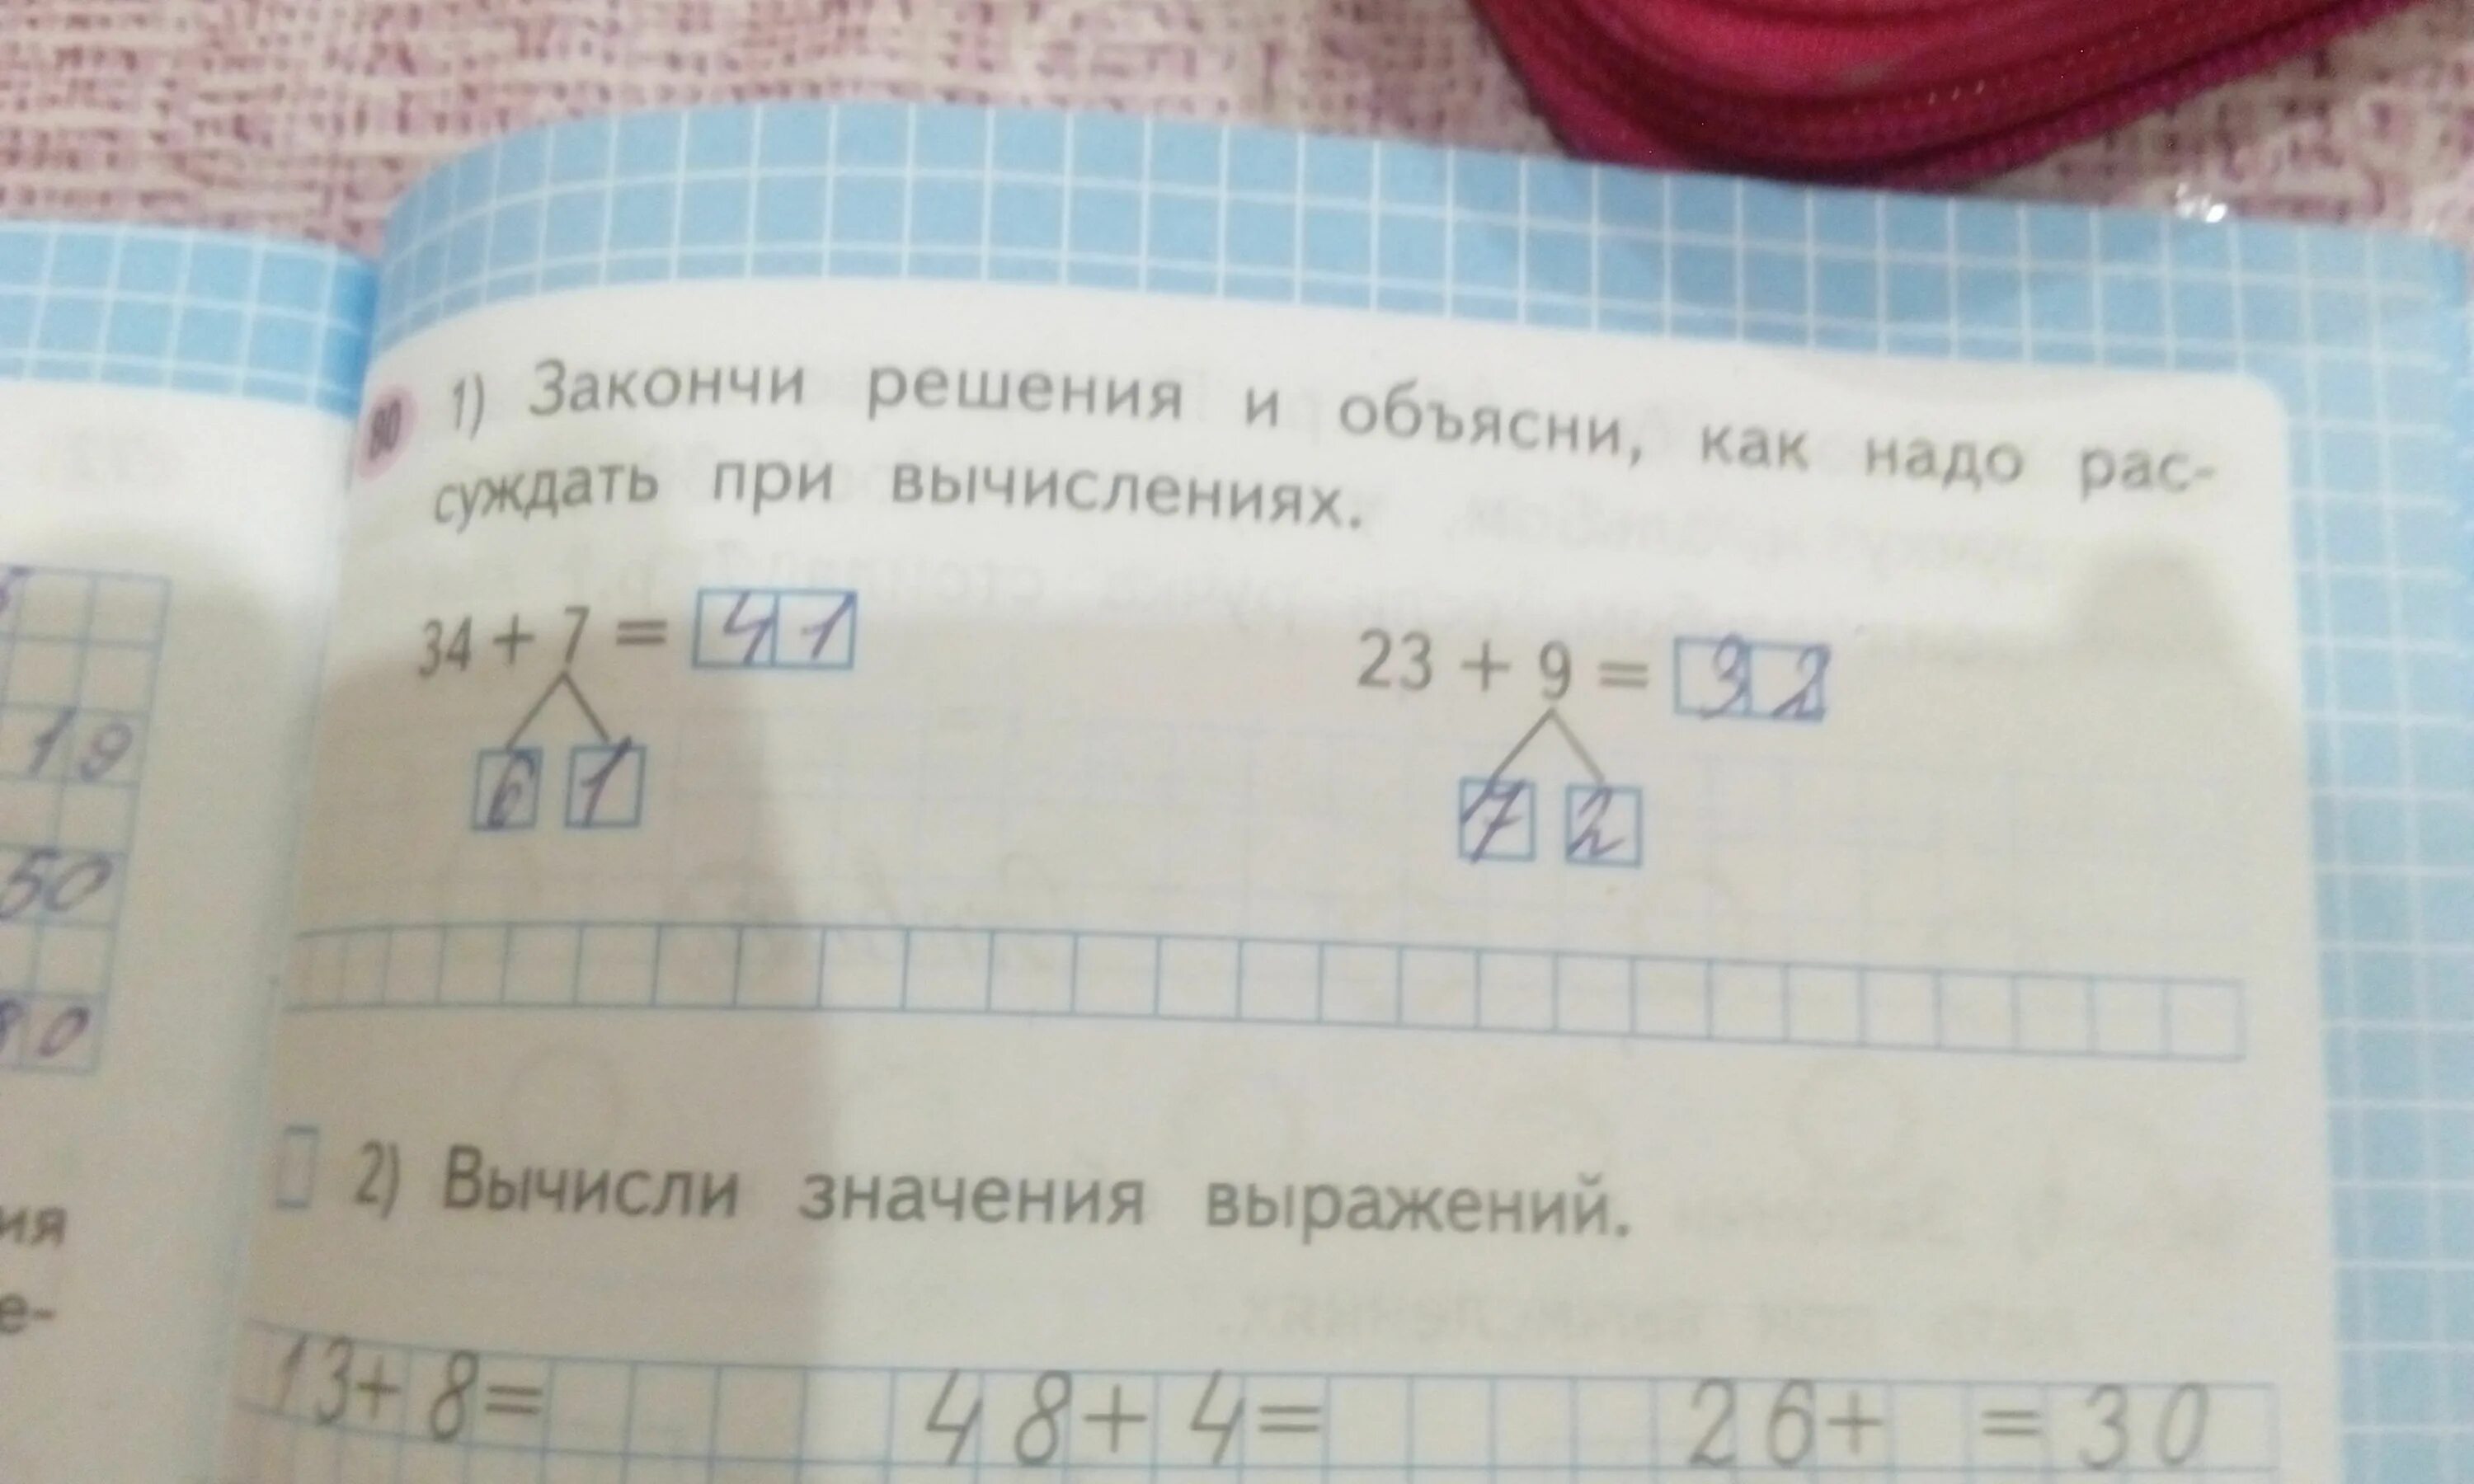 19
50
80
ия
е-
80 1) Закончи решения и объясни, как надо рас-
суждать при вычислениях.
34 + 7 = 41 23 + 9 = 32
6 1 7 2
2) Вычисли значения выражений.
13+ 8= 48+ 4= 26+ =30